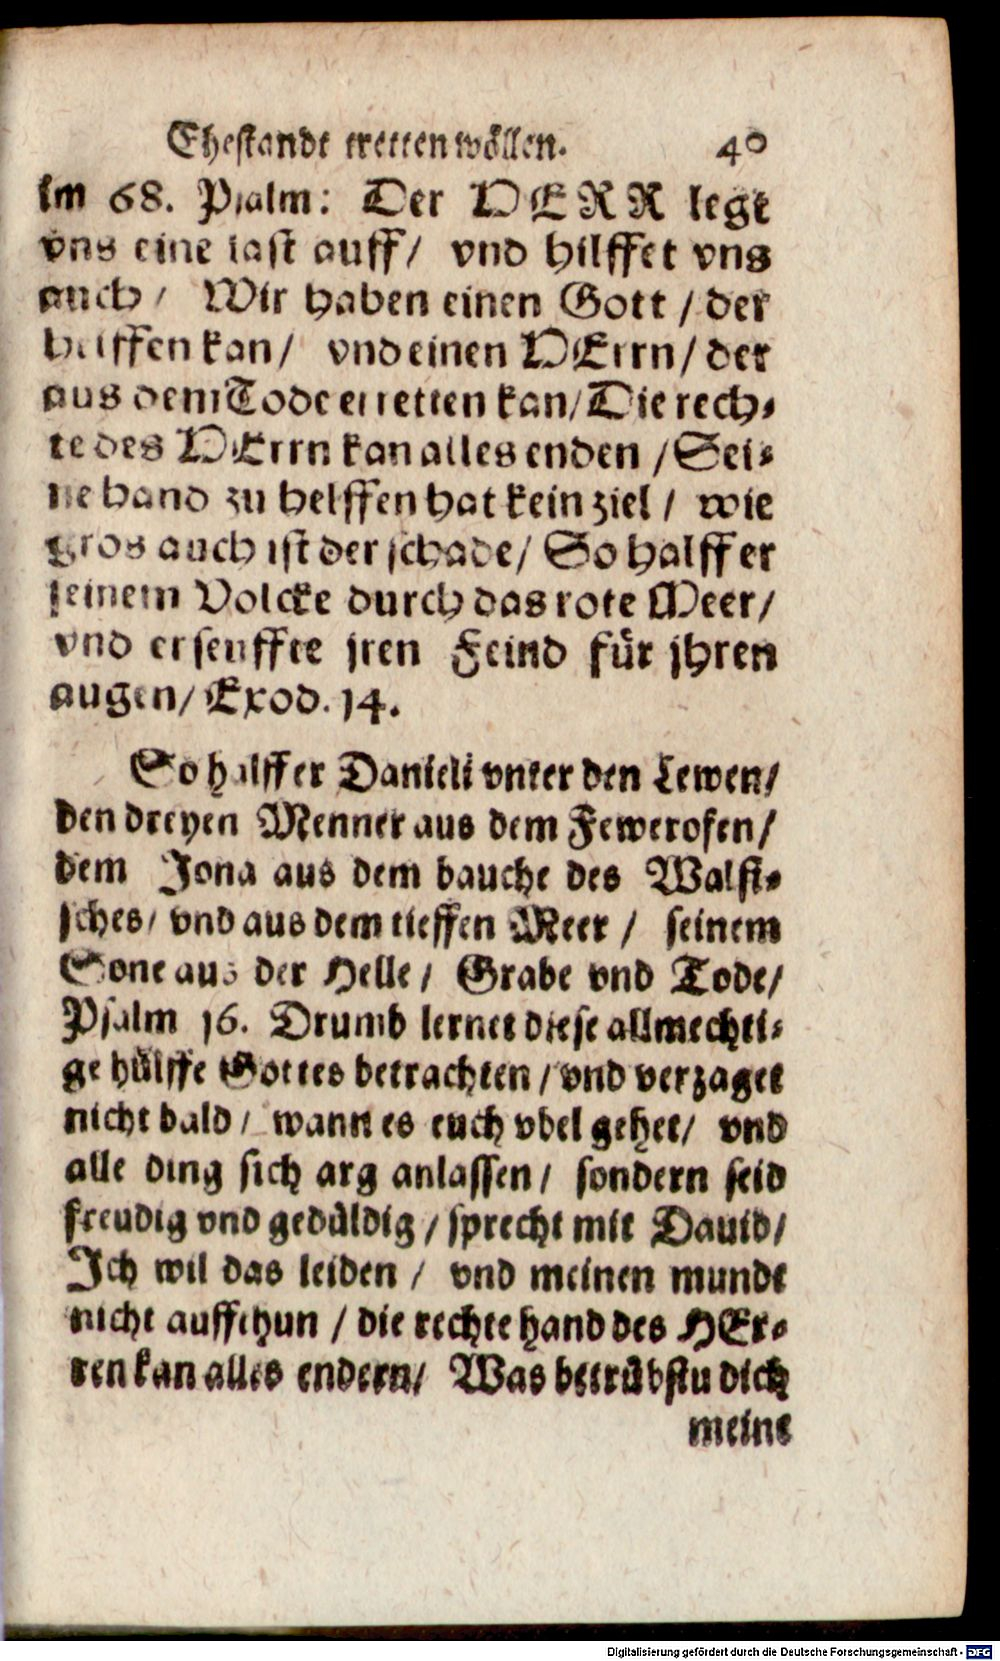 Ehestandt tretten wöllen. 40
Im 68. Psalm: Der HERR legt
vns eine last auff/ vnd hilffet vns
auch/ Wir haben einen Gott/ der
helffen kan/ vnd einen HErrn/ der
aus dem Tode erretten kan/ Die rech-
te des HErrn kan alles enden/ Sei-
ne hand zu helffen hat kein ziel/ wie
gros auch ist der schade/ So halff er
seinem Volcke durch das rote Meer/
vnd erseuffte jren Feind für jhren
augen/ Exod. 14.
So halff er Danieli vnter den Lewen/
den dreyen Menner aus dem Fewerofen/
dem Jona aus dem bauche des Walfi-
sches/ vnd aus dem tieffen Meer/ seinem
Sone aus der Helle/ Grabe vnd Tode/
Psalm 16. Drumb lernet diese allmechti-
ge hülffe Gottes betrachten/ vnd verzaget
nicht bald/ wann es euch vbel gehet/ vnd
alle ding sich arg anlassen/ sondern seid
freudig vnd gedüldig/ sprecht mit Dauid/
Ich wil das leiden/ vnd meinen mundt
nicht auffthun/ die rechte hand des HEr-
ren kan alles endern/ Was betrübstu dich
meine
Digitalisierung gefördert durch die Deutsche Forschungsgemeinschaft - DFG